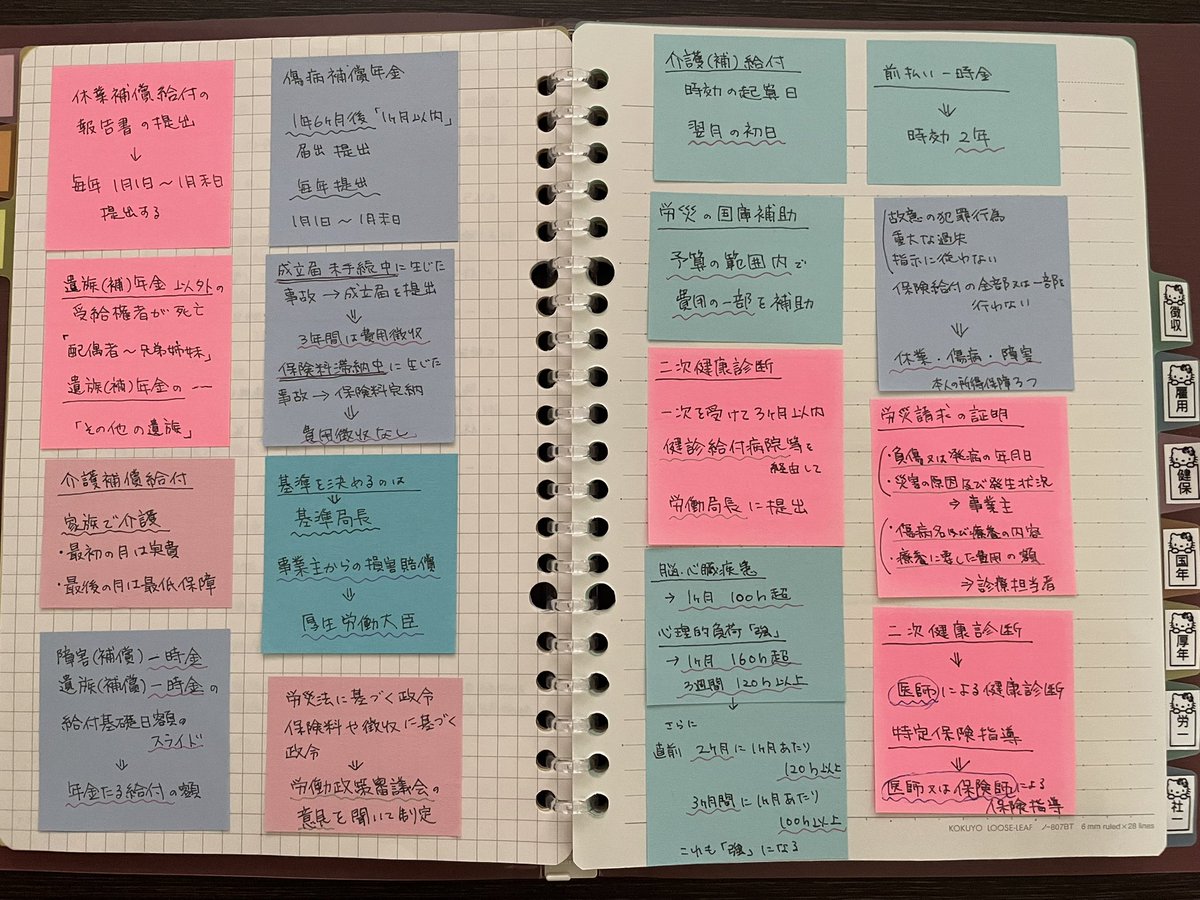 休業補償給付の
報告書の提出
↓
毎年 1月1日～1月末日
提出する
遺族(補)年金 以外の
受給権者が死亡
「配偶者～兄弟姉妹」
遺族(補)年金の ーー
「その他の遺族」
介護補償給付
家族で介護
・最初の月は実費
・最後の月は最低保障
障害(補償)一時金
遺族(補償)一時金の
給付基礎日額の
スライド
⇓
年金たる給付の額
傷病補償年金
1年6ヶ月後「1ヶ月以内」
届出 提出
毎年提出
1月1日～1月末日
成立届 未手続中に生じた
事故→成立届を提出
⇓
3年間は費用徴収
保険料滞納中に生じた
事故→保険料完納
⇓
費用徴収なし
基準を決めるのは
⇓
基準局長
事業主からの損害賠償
⇓
厚生労働大臣
労災法に基づく政令
保険料や徴収に基づく
政令
⇓
労働政策審議会の
意見を聞いて制定
介護(補)給付
時効の起算日
翌月の初日
労災の国庫補助
予算の範囲内で
費用の一部を補助
二次健康診断
一次を受けて3ヶ月以内
健診給付病院等を
経由して
労働局長に提出
脳・心臓疾患
→ 1ヶ月 100h超
心理的負荷「強」
→ 1ヶ月 160h超
3週間 120h以上
↓
さらに
直前 2ヶ月に1ヶ月あたり
120h以上
3ヶ月間に1ヶ月あたり
100h以上
これも「強」になる
前払い一時金
⇓
時効 2年
故意の犯罪行為
重大な過失
指示に従わない
保険給付の全部又は一部を
行わない
⇓
休業・傷病・障害
本人の所得保障3つ
労災請求の証明
・負傷又は発病の年月日
・災害の原因及び発生状況
⇒ 事業主
・傷病名及び療養の内容
・療養に要した費用の額
⇒診療担当者
二次健康診断
⇓
医師による健康診断
特定保険指導
⇓
医師又は保険師による
保険指導
KOKUYO LOOSE-LEAF ノ-807BT 6 mm ruled×28 lines
徴収
雇用
健保
国年
厚年
労一
社一